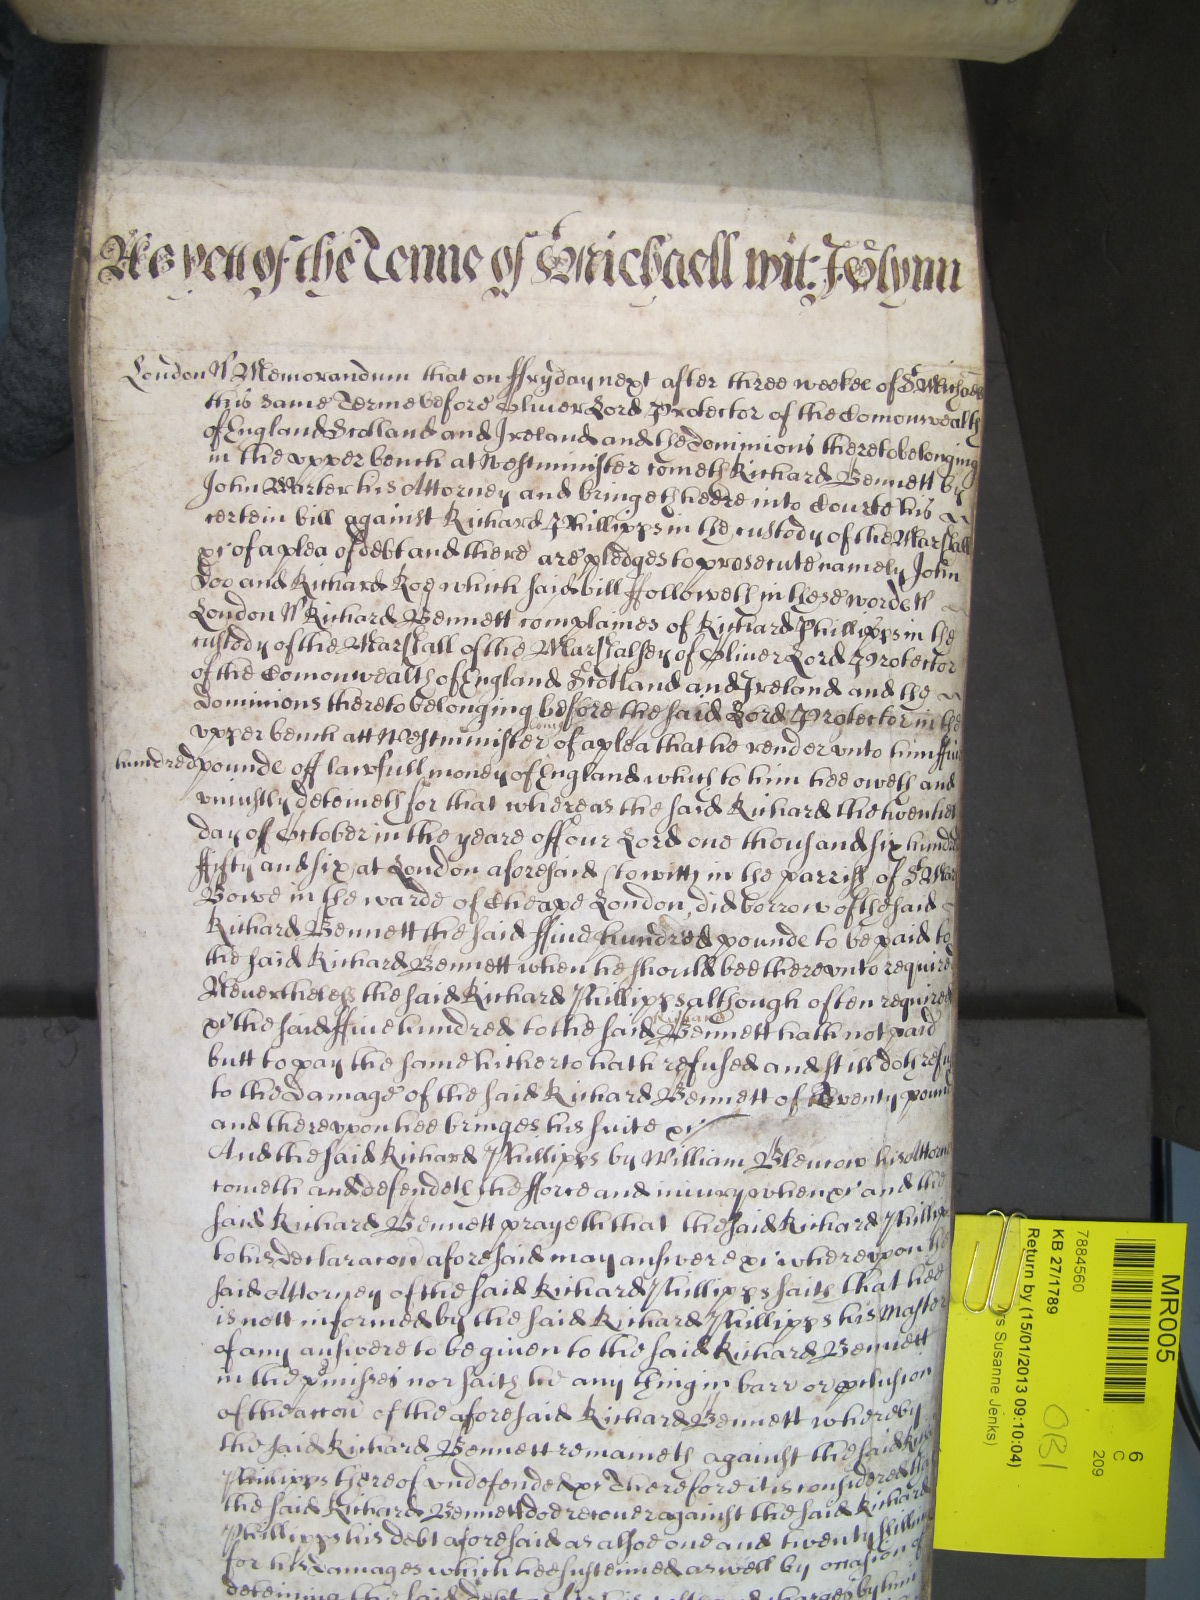 As yett of the Terme of St Michaell wit: Joslynn
London ss Memorandum that on ffryday next after three weekes of St Michaell
this same Terme before Oliver Lord Protector of the Comonwealth
of England Scotland and Ireland and the dominions thereto belonging
in the vpper bench at Westminster cometh Richard Bennett by
John Warter his Attorney and bringeth heere into Courte his
certein bill against Richard Phillipps in the custody of the Marshall
&c of a plea of debt and there are pledges to prosecute namely John
Doo and Richard Roe which said bill ffolloweth in these wordes ss
London ss Richard Bennett complaines of Richard Phillipps in the
custody of the Marshall of the Marshalsey of Oliver Lord Protector
of the Comonwealth of England Scotland and Ireland and the
Dominions thereto belonging before the said Lord Protector in the
vpper bench att Westminister of a plea that he render vnto him ffive
hundred pounds off lawfull money of England which to him hee oweth and
vniustly deteineth for that whereas the said Richard the twentieth
day of October in the yeare off our Lord one thousand six hundred
ffifty and six at London aforesaid (to witt) in the parrish of St Mary
Bowe in the warde of Cheape London, did borrow of the said
Richard Bennett the said ffive hundred pounds to be paid to
the said Richard Bennett when he should bee therevnto required
Neverthelesse the said Richard Phillipps although often required
&c the said ffive hundred to the said Richard Bennett hath not paid
butt to pay the same hitherto hath refused and still doth refuse
to the Damage of the said Richard Bennett of Twenty pounds
and therevpon hee bringes his suite &c
And the said Richard Phillipps by William his Attorney
cometh and defendeth the fforce and iniury when &c and the
said Richard Bennett prayeth that the said Richard Phillipps
to his declaracon aforesaid may answere &c wherevpon the
said Attorney of the said Richard Phillipps saith that hee
is nott informed by the said Richard Phillipps his Master
of any answere to be given to the said Richard Bennett
in the p'misses nor saith hee any thing in barr or p'clusion
of the accon of the aforesaid Richard Bennett whereby
the said Richard Bennett remaineth against the said Richard
Phillipps thereof vndefended &c Therefore it is considered that
the said Richard Bennett doo recover against the said Richard
Phillipps his debt aforesaid as alsoe one and twenty shillings
for his Damages which hee susteined aswell by occasion of
deteining the said debt as for his costs and charges by him
MR005
6
C
209
7884560
KB 27/1789
Return by (15/01/2013 09:10:04)
Susanne Jenks)
OB1